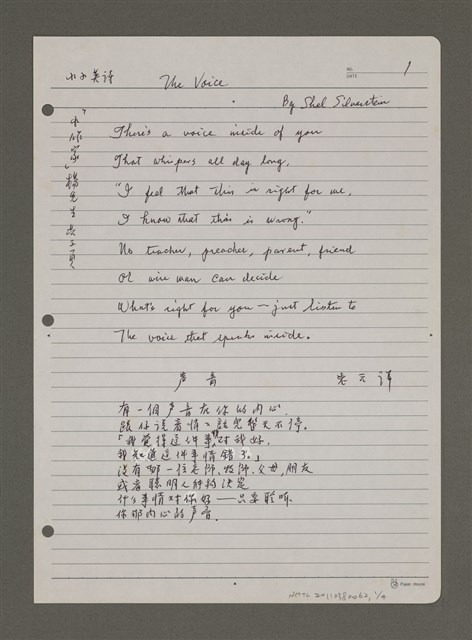 小小英詩
The Voice
NO.
DATE
1
By Shel Silverstein
There's a voice inside of you
That whispers all day long,
"I feel that this is right for me,
I know that this is wrong."
No teacher, preacher, parent, friend
Or wise man can decide
What's right for you — just listen to
The voice that speaks inside.
声音
有一個声音在你的内心,
跟你說着情話說完整天不停。
「我覺得這件事,对我好,
我知道這件事情錯了。」
没有哪一位老師,牧師,父母,朋友
或者聰明人能夠決定
什么事情对你好——只要聆听
你那内心的声音.
NMTL 20110380062, 1/4